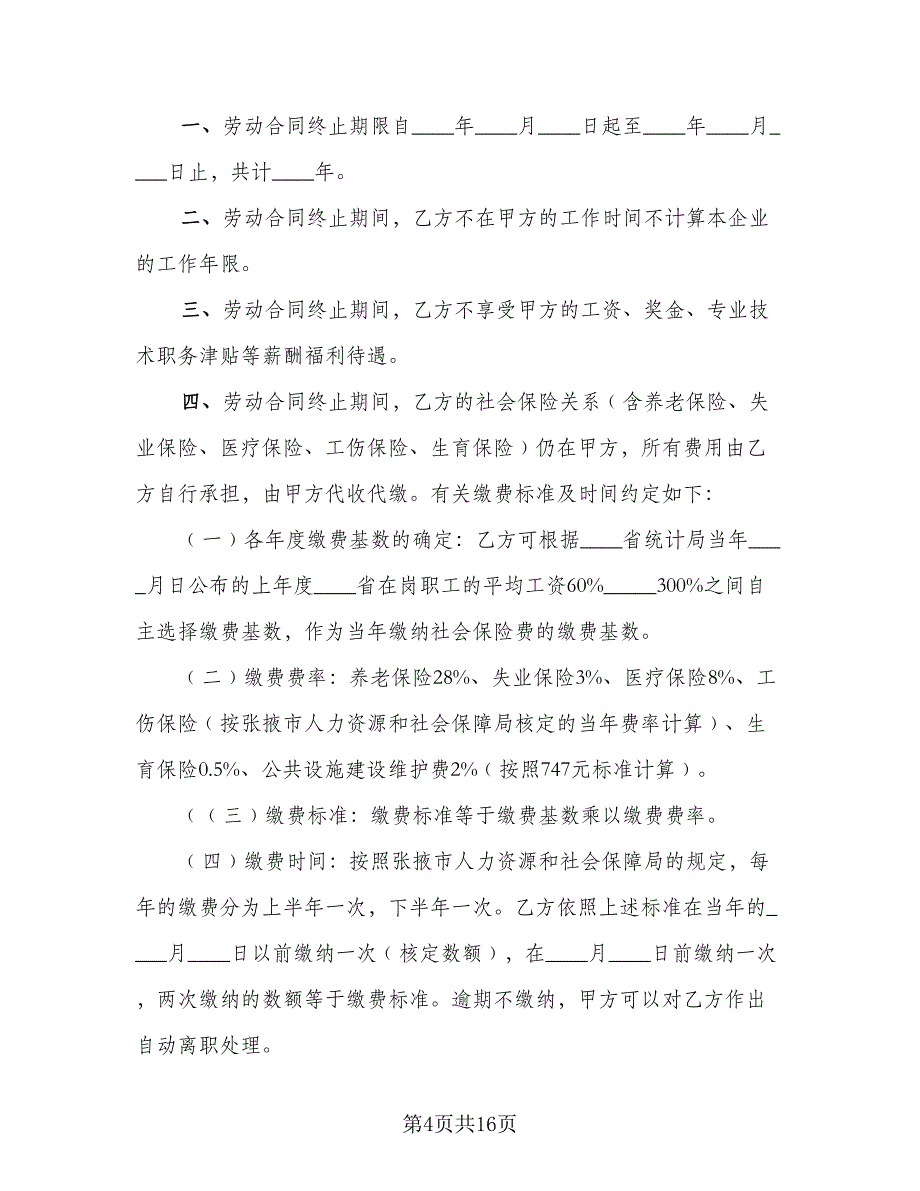 一、劳动合同终止期限自____年____月____日起至____年____月_
___日止，共计____年。
二、劳动合同终止期间，乙方不在甲方的工作时间不计算本企业
的工作年限。
三、劳动合同终止期间，乙方不享受甲方的工资、奖金、专业技
术职务津贴等薪酬福利待遇。
四、劳动合同终止期间，乙方的社会保险关系（含养老保险、失
业保险、医疗保险、工伤保险、生育保险）仍在甲方，所有费用由乙
方自行承担，由甲方代收代缴。有关缴费标准及时间约定如下：
（一）各年度缴费基数的确定：乙方可根据____省统计局当年___
_月日公布的上年度____省在岗职工的平均工资60%_____300%之间自
主选择缴费基数，作为当年缴纳社会保险费的缴费基数。
（二）缴费费率：养老保险28%、失业保险3%、医疗保险8%、工
伤保险（按张掖市人力资源和社会保障局核定的当年费率计算）、生
育保险0.5%、公共设施建设维护费2%（按照747元标准计算）。
（（三）缴费标准：缴费标准等于缴费基数乘以缴费费率。
（四）缴费时间：按照张掖市人力资源和社会保障局的规定，每
年的缴费分为上半年一次，下半年一次。乙方依照上述标准在当年的_
___月____日以前缴纳一次（核定数额），在____月____日前缴纳一次
，两次缴纳的数额等于缴费标准。逾期不缴纳，甲方可以对乙方作出
自动离职处理。
第4页共16页